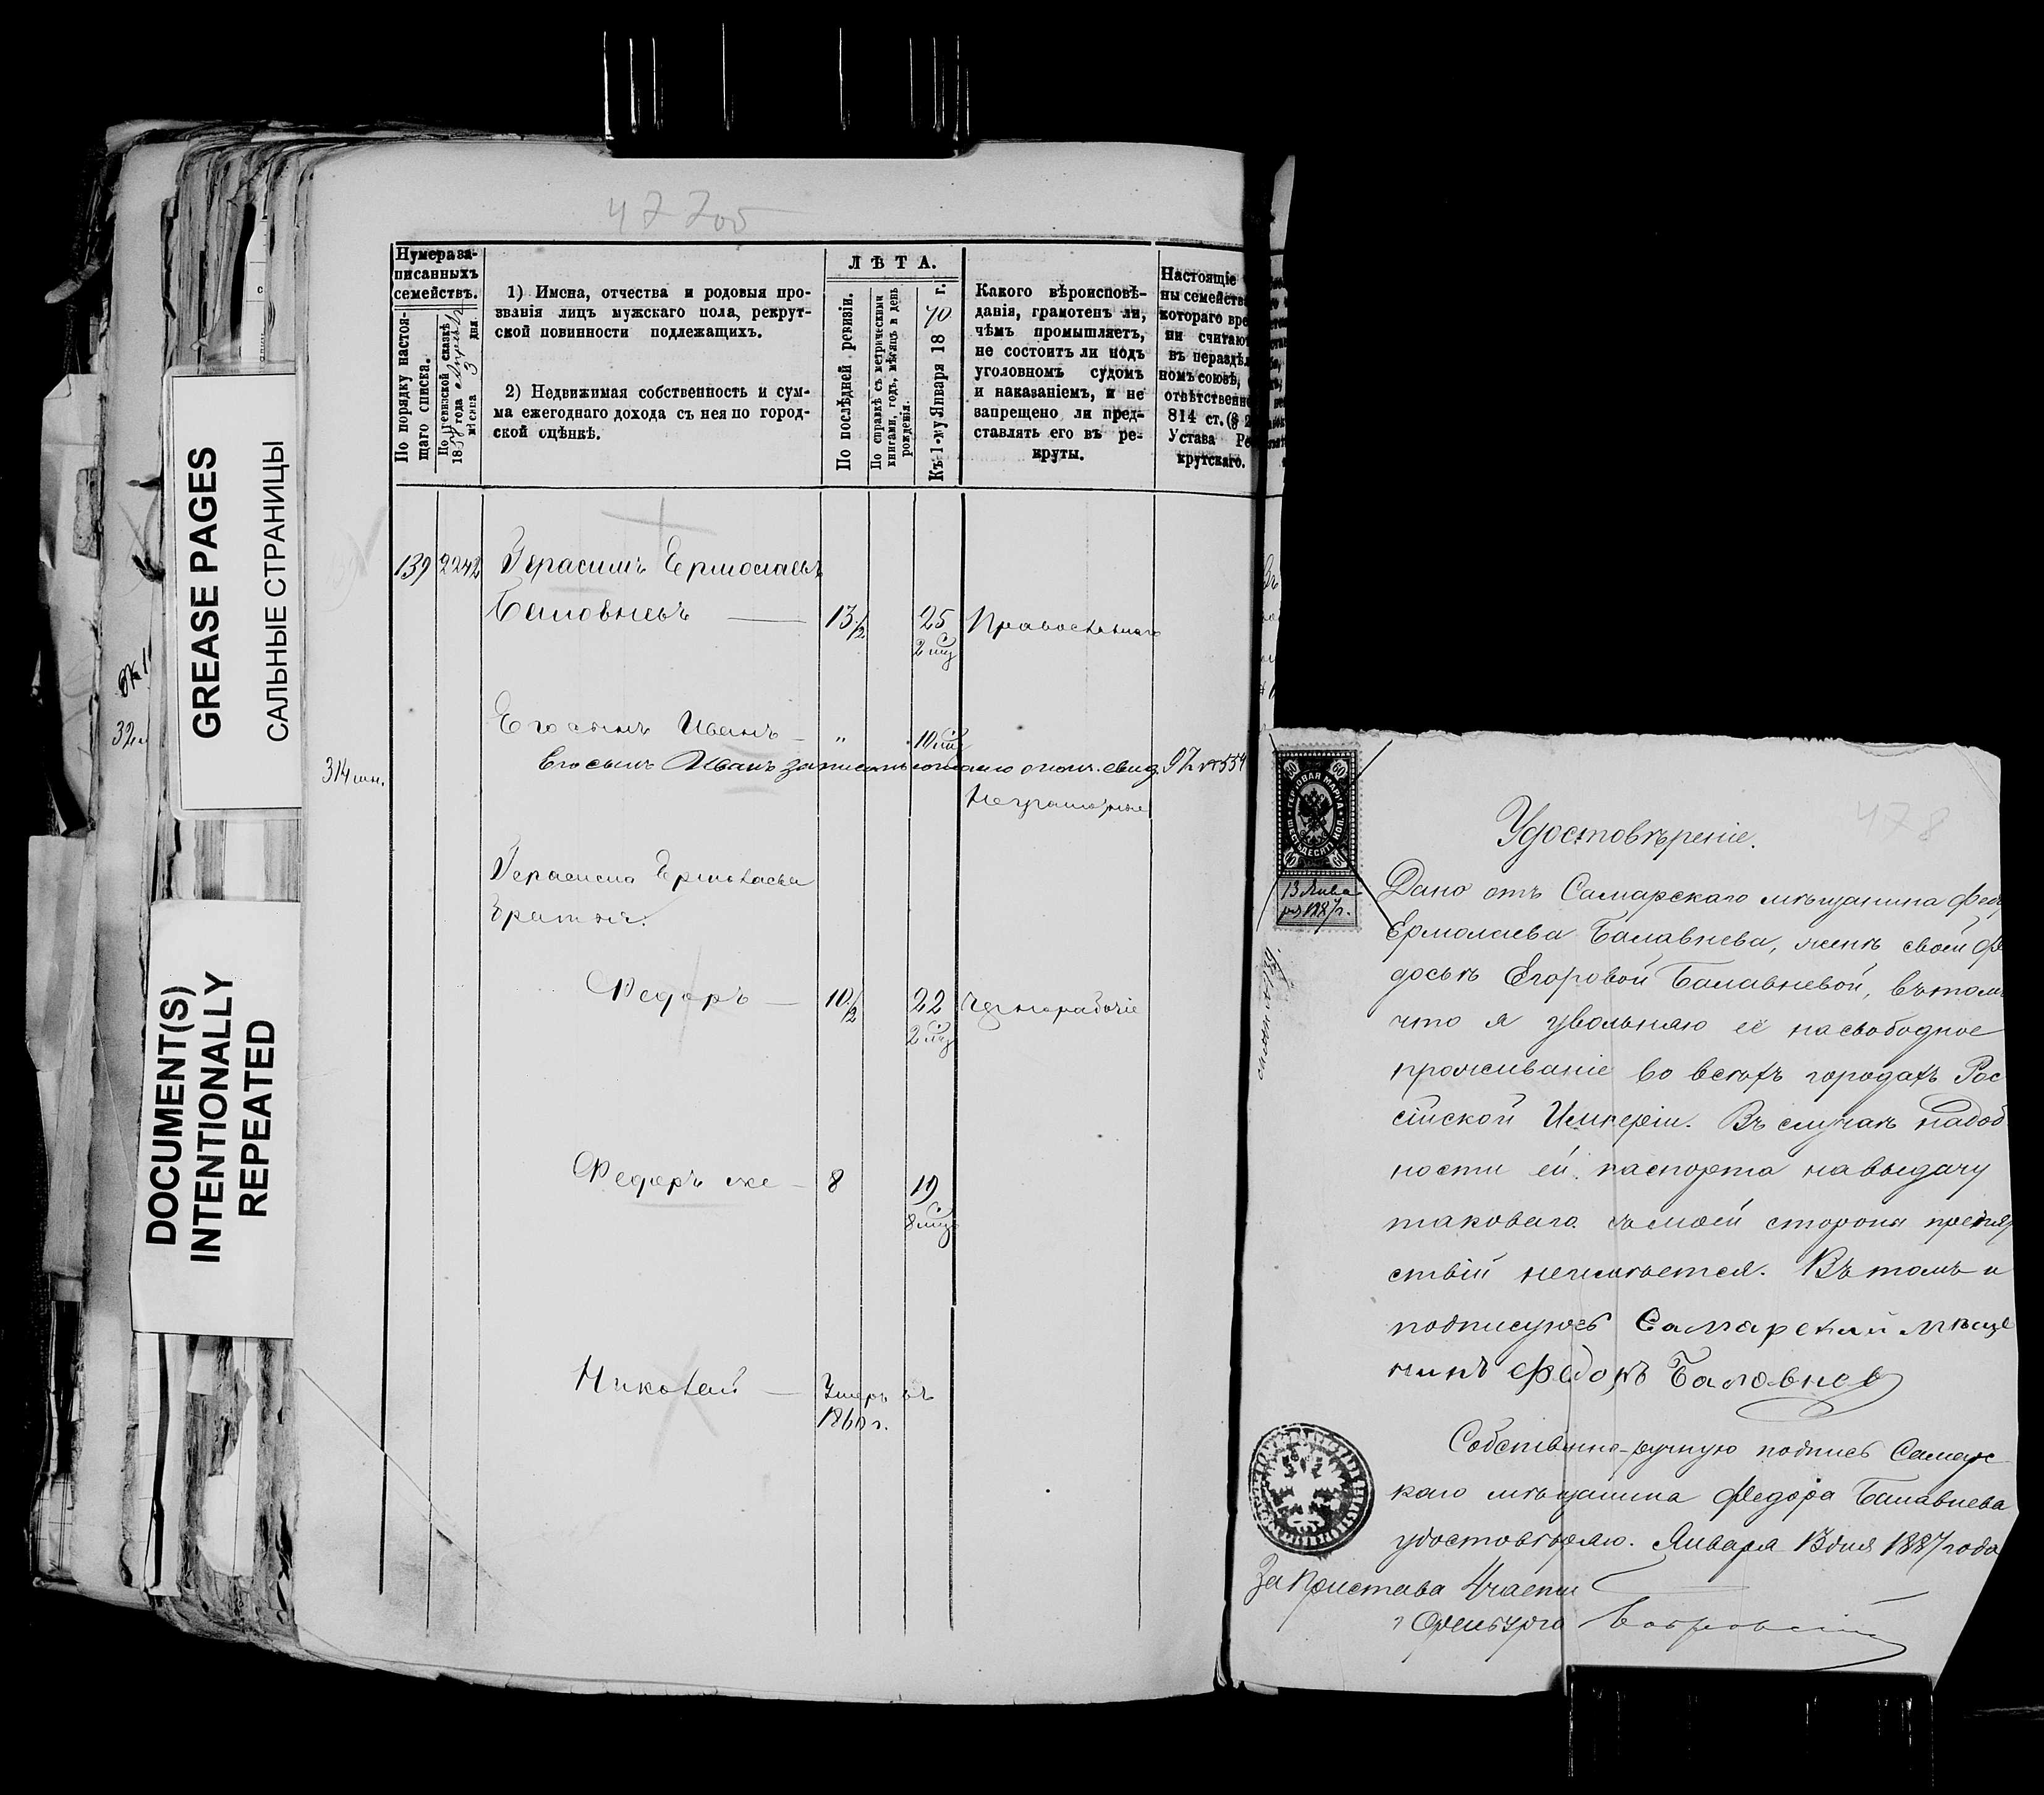 477об
Нумера за-
писанныхъ
семействъ.
По порядку настоя-
щаго списка.
По ревизской сказкѣ
1857 года Апрѣля
мѣсяца 3 дня.
1) Имена, отчества и родовыя про-
званія лицъ мужскаго пола, рекрут-
ской повинности подлежащихъ.
2) Недвижимая собственность и сум-
ма ежегоднаго дохода съ нея по город-
ской оцѣнкѣ.
ЛѢТА.
По послѣдней ревизіи.
По справкѣ съ метрическими
книгами, годъ, мѣсяцъ и день
рожденія.
Къ 1-му Января 1870 г.
Какого вѣроисповѣ-
данія, грамотенъ ли,
чѣмъ промышляетъ,
не состоитъ ли подъ
уголовномъ судомъ
и наказаніемъ, и не
запрещено ли пред-
ставлять его въ ре-
круты.
Настоящіе
ны семейства
котораго вре
ни считаю
въ нераздѣл
номъ союзѣ,
отвѣтственно
814 ст. (§ 2
Устава Ре
крутскаго.
139 2242 Герасимъ Ермолаевъ
Баловневъ — 13 1/2 25 Православнаго
2 мѣс
Его сынъ Иванъ — „ 10 мѣс
314 мн. Его сынъ Иванъ записанъ 97 № 554
Неграмотные
Герасима Ермолаева
братья:
Федоръ — 10 1/2 22 Чернорабочіе
2 мѣс
Федоръ же — 8 19
8 мѣс
Николай — Умеръ въ
1860 г.
GREASE PAGES
САЛЬНЫЕ СТРАНИЦЫ
DOCUMENT(S)
INTENTIONALLY
REPEATED
32
478
60 60
ГЕРБОВАЯ МАРКА
ШЕСТЬДЕСЯТЪ КОП.
60 60
13 Янва
ря 1887 г.
Удостовѣреніе.
Дано отъ Самарскаго мѣщанина Федо
Ермолаева Балавнева, женѣ своей Фе
досьѣ Егоровой Балавневой, въ томъ
что я увольняю её на свободное
проживаніе во всѣхъ городахъ Рос
сійской Имперіи. Въ случаѣ надоб
ности ей паспорта на выдачу
таковаго съ моей стороны препят
ствій неимѣется. Въ томъ и
подписуюсь Самарскій мѣща
нинъ Федоръ Баловнев
Собственно-ручную подпись Самарс
каго мѣщанина Федора Балавнева
удостовѣряю. Января 13 дня 1887 года
За Пристава 4 части
г Оренбурга